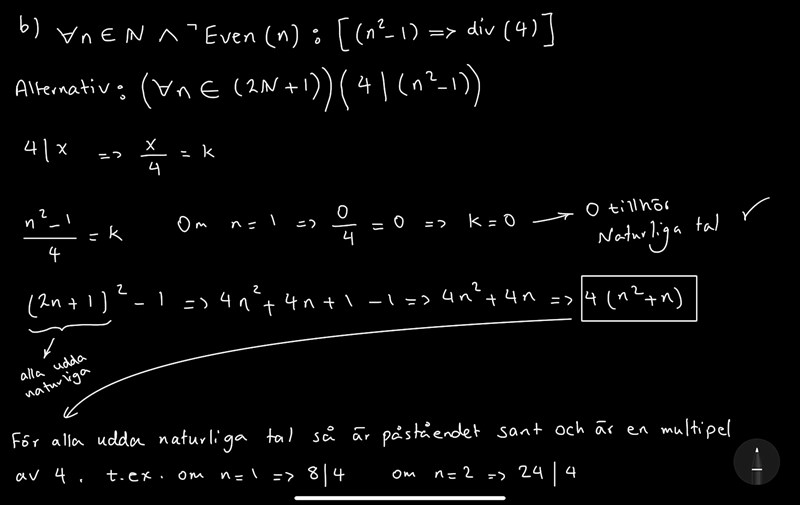 b) ∀n ∈ N ∧ ¬Even(n) : [(n²-1) => div(4)]
Alternativ: (∀n ∈ (2N+1))(4|(n²-1))
4|x => x/4 = k
(n²-1)/4 = k Om n=1 => 0/4 = 0 => k=0 → 0 tillhör
Naturliga tal ✓
(2n+1)² - 1 => 4n² + 4n + 1 - 1 => 4n² + 4n => 4(n²+n)
alla udda
naturliga
För alla udda naturliga tal så är påståendet sant och är en multipel
av 4. t.ex. om n=1 => 8|4 om n=2 => 24|4